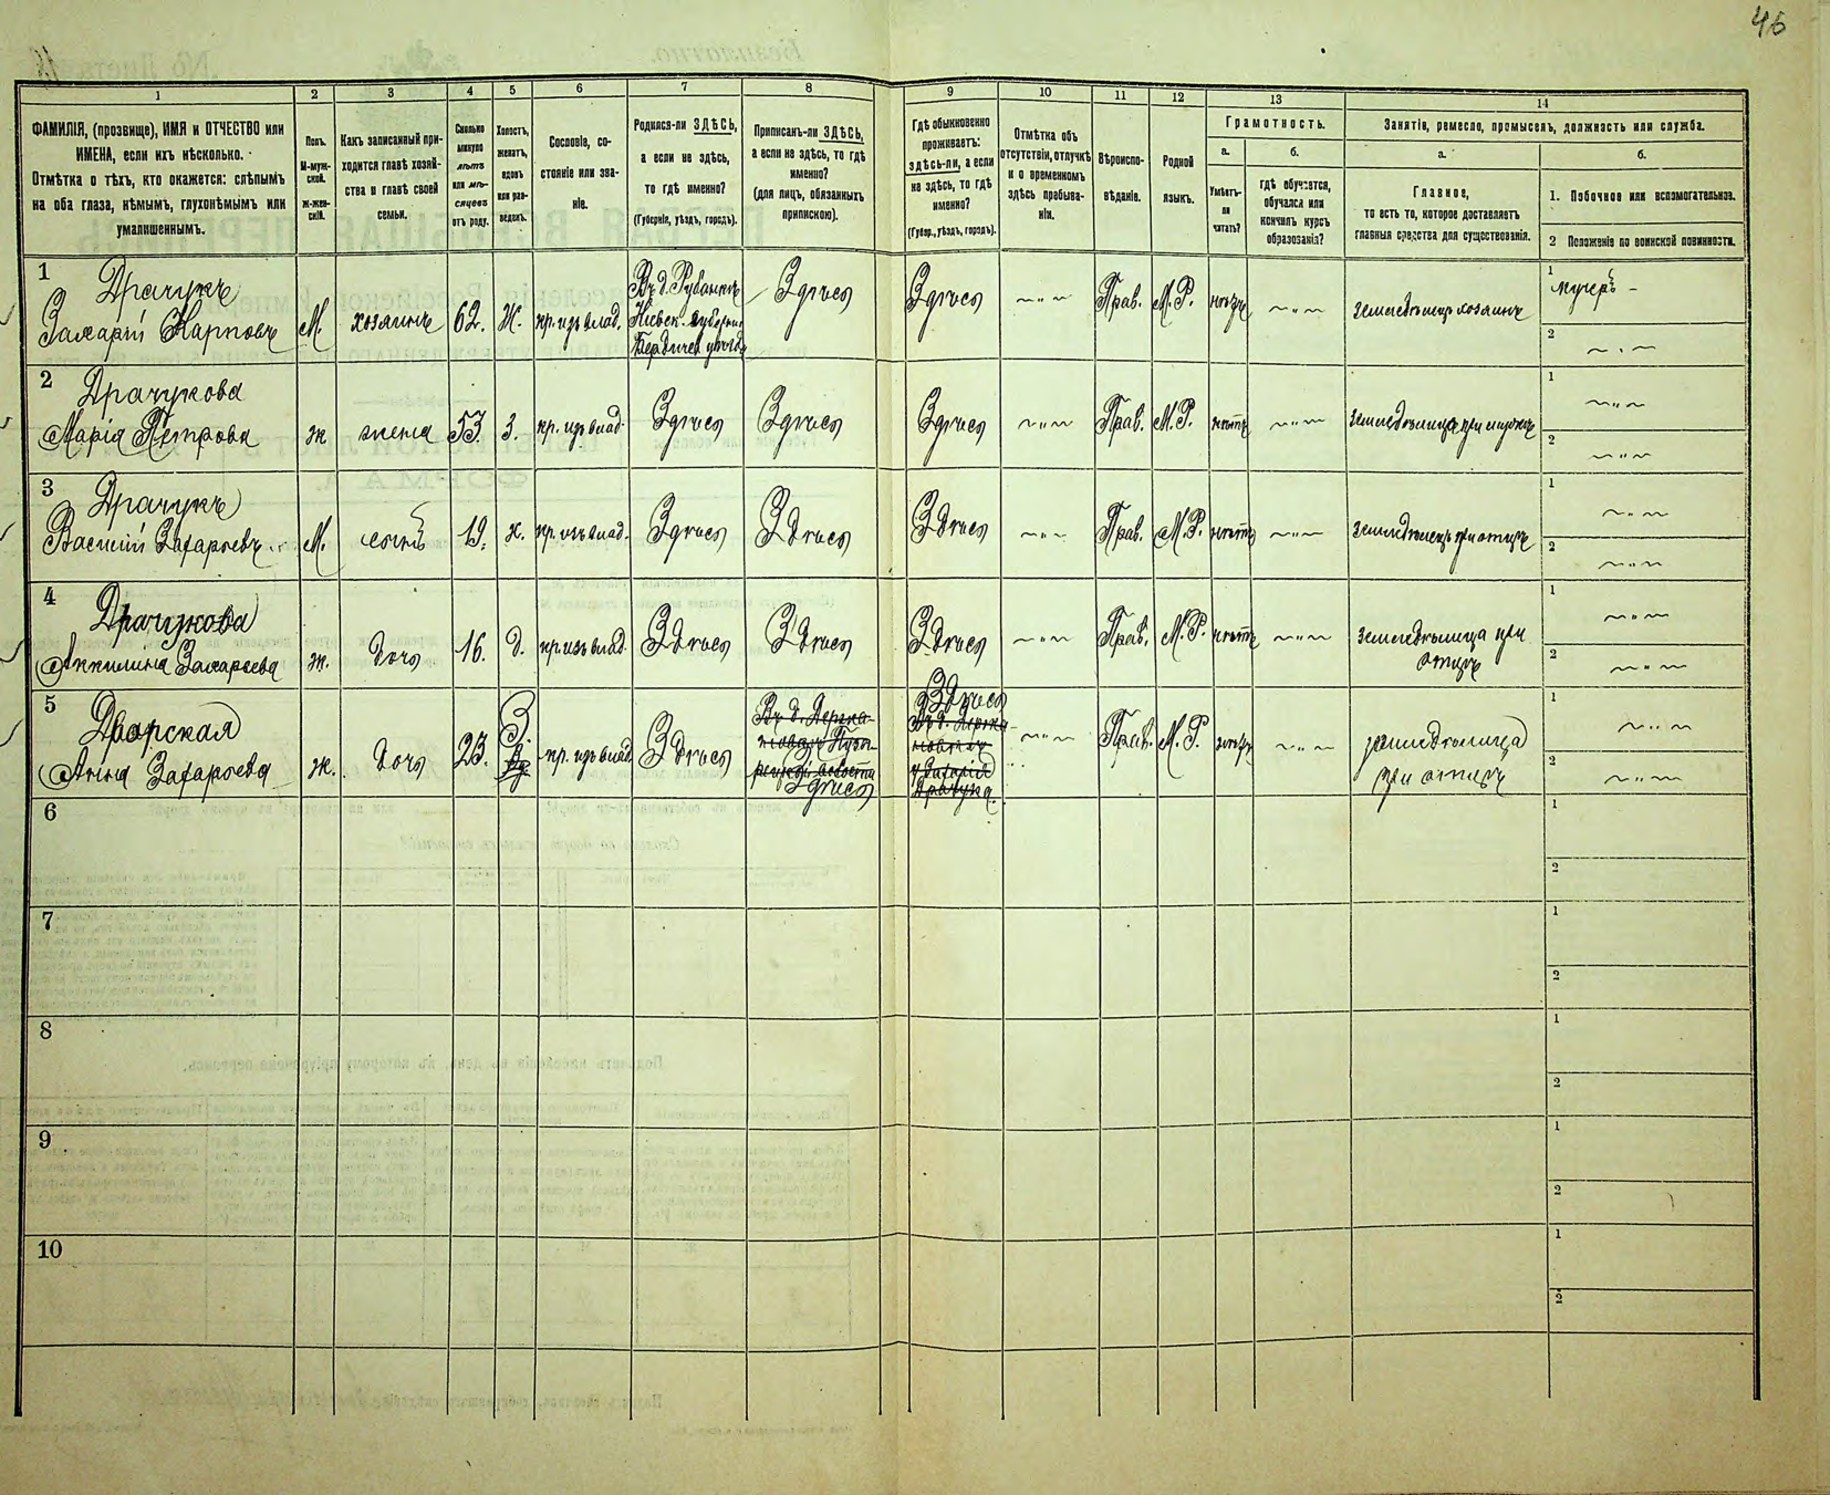 46
1 2 3 4 5 6 7 8 9 10 11 12 13 14
ФАМИЛІЯ, (прозвище), ИМЯ и ОТЧЕСТВО или
ИМЕНА, если ихъ нѣсколько.
Отмѣтка о тѣхъ, кто окажется: слѣпымъ
на оба глаза, нѣмымъ, глухонѣмымъ или
умалишеннымъ.
Полъ.
М-муж-
ской.
ж-жен-
скій.
Какъ записанный при-
ходится главѣ хозяй-
ства и главѣ своей
семьи.
Сколько
минуло
лѣтъ
или мѣ-
сяцевъ
отъ роду.
Холостъ,
женатъ,
вдовъ
или раз-
веденъ.
Сословіе, со-
стояніе или зва-
ніе.
Родился-ли ЗДѢСЬ,
а если не здѣсь,
то гдѣ именно?
(Губернія, уѣздъ, городъ).
Приписанъ-ли ЗДѢСЬ,
а если не здѣсь, то гдѣ
именно?
(для лицъ, обязанныхъ
припискою).
Гдѣ обыкновенно
проживаетъ:
здѣсь-ли, а если
не здѣсь, то гдѣ
именно?
(Губер., уѣздъ, городъ).
Отмѣтка объ
отсутствіи, отлучкѣ
и о временномъ
здѣсь пребыва-
ніи.
Вѣроиспо-
вѣданіе.
Родной
языкъ.
Грамотность.
а.
Умѣетъ-
ли
читать?
б.
гдѣ обучается,
обучался или
кончилъ курсъ
образованія?
Занятіе, ремесло, промыселъ, должность или служба.
а.
Главное,
то есть то, которое доставляетъ
главныя средства для существованія.
б.
1. Побочное или вспомогательное.
2 Положеніе по воинской повинности.
1
Драчукъ
Захарій Карповъ
М. хозяинъ 62. Ж. кр. изъ влад.
Въ д.
Киевск. губерніи
Бердичев уѣзда
Здѣсь Здѣсь Прав. М. Р. нѣтъ
земледѣлецъ хозяинъ
1
2
2
Драчукова
Марія Петрова
ж жена 53. З. кр. изъ влад. Здѣсь Здѣсь Здѣсь Прав. М. Р. нѣтъ земледѣлица при мужѣ
1
2
3
Драчукъ
Василій Захарьевъ
М. сынъ 19. х. кр. изъ влад. Здѣсь Здѣсь Здѣсь Прав. М. Р. нѣтъ земледѣлецъ при отцѣ
1
2
4
Драчукова
Захарьева
ж. дочь 16. д. кр. изъ влад. Здѣсь Здѣсь Здѣсь Прав. М. Р. нѣтъ земледѣлица при
отцѣ
1
2
5
Дворская
Анна Захарьева
ж. дочь 23. З. кр. изъ влад. Здѣсь
Здѣсь
Здѣсь
Прав. М. Р. нѣтъ
земледѣлица
при отцѣ
1
2
6
1
2
7
1
2
8
1
2
9
1
2
10
1
2